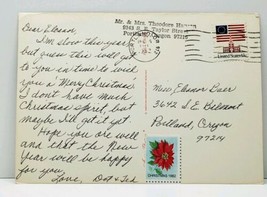 Dear Eleanor,
I'm slow this year
but guess this will get
to you in time to wish
you a Merry Christmas
I don't have much
Christmas spirit, but
maybe I'll get it yet.
Hope you are well
and that the New
Year will be happy
for you.
Love, Dot & Ted
Mr. & Mrs. Theodore
S. E. Taylor Street
Portland, Oregon 97215
United States
Miss Eleanor Baer
3642 S E Belmont
Portland, Oregon
97214
CHRISTMAS 1982